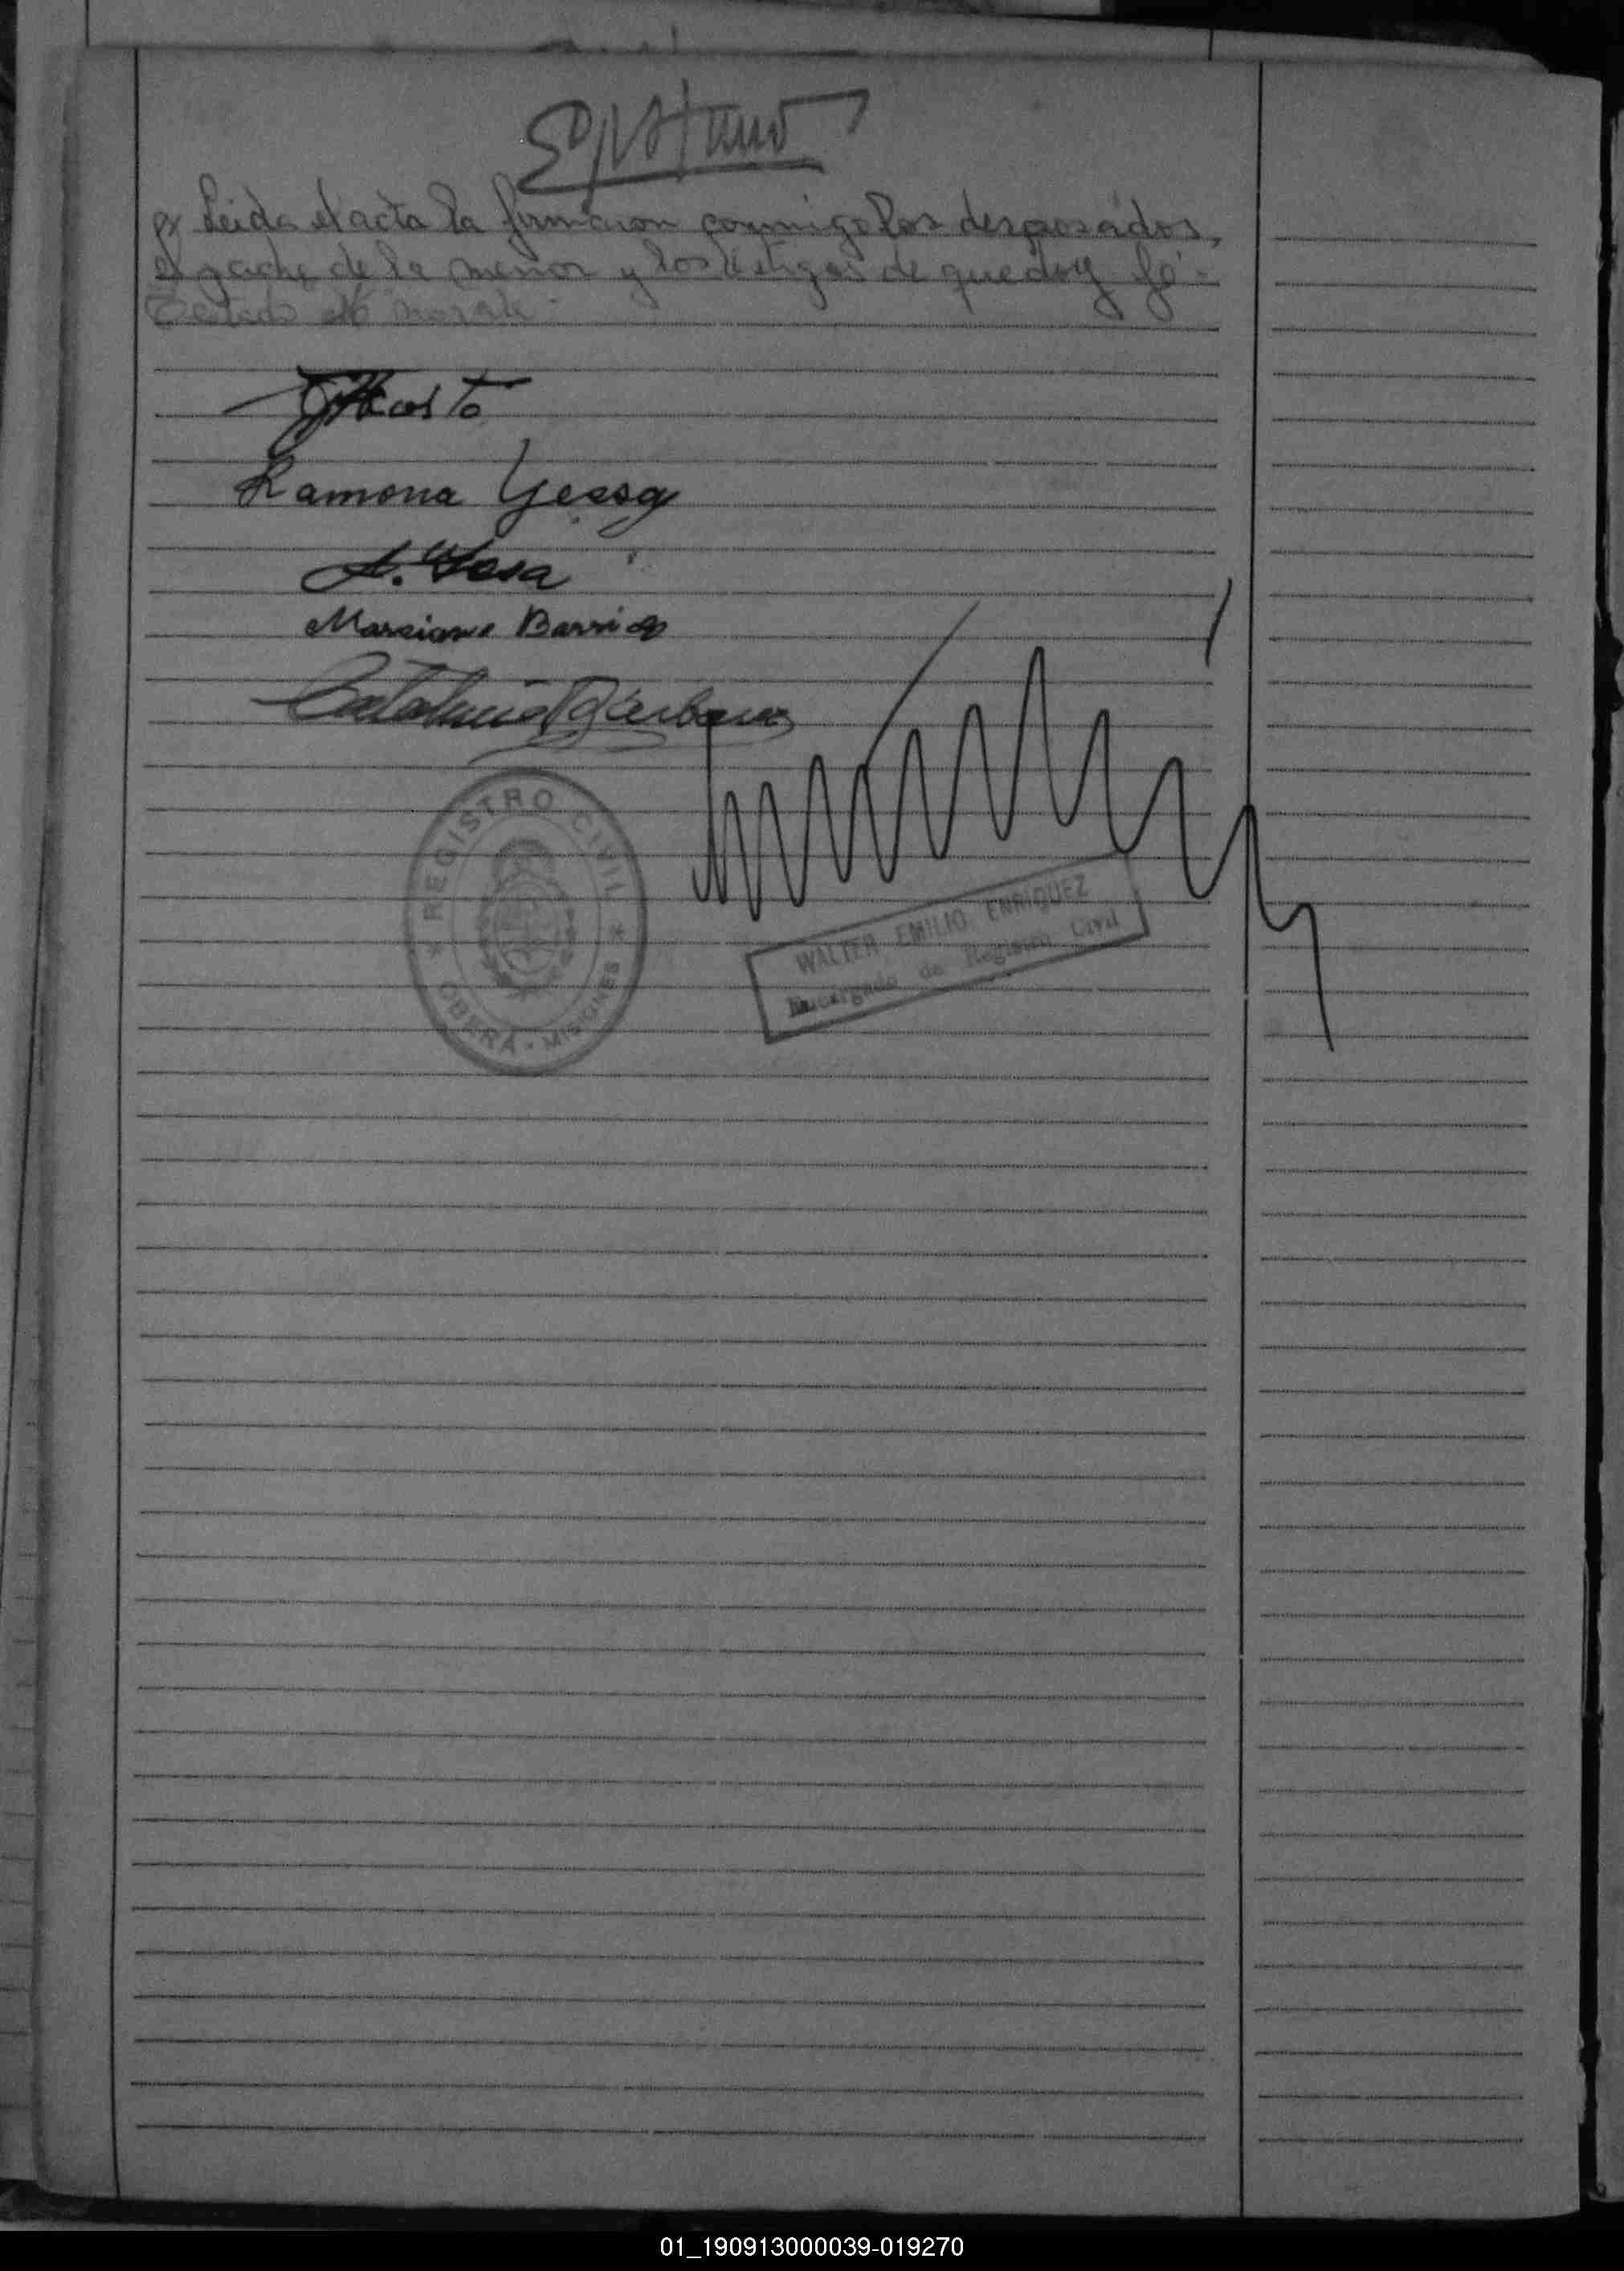 Leida el acta la firmaron conmigo los desposados,
el padre de la menor y los testigos de que doy fé.-
Testado no vale.-
Ramona Yessa
A. Sosa
Marciano Barrios
REGISTRO CIVIL
OBERA - MISIONES
WALTER EMILIO ENRIQUEZ
Encargado de Registro Civil
01_190913000039-019270